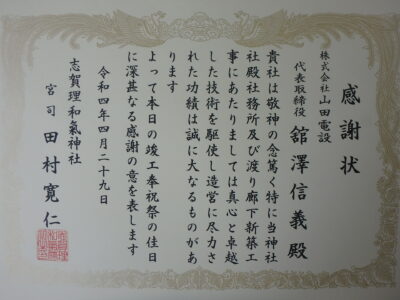 感謝状
株式会社山田電設
代表取締役 舘澤信義殿
貴社は敬神の念篤く特に当神社
社殿社務所及び渡り廊下新築工
事にあたりましては真心と卓越
した技術を駆使し造営に尽力さ
れた功績は誠に大なるものがあ
ります
よって本日の竣工奉祝祭の佳日
に深甚なる感謝の意を表します
令和四年四月二十九日
志賀理和氣神社
宮司 田村寛仁